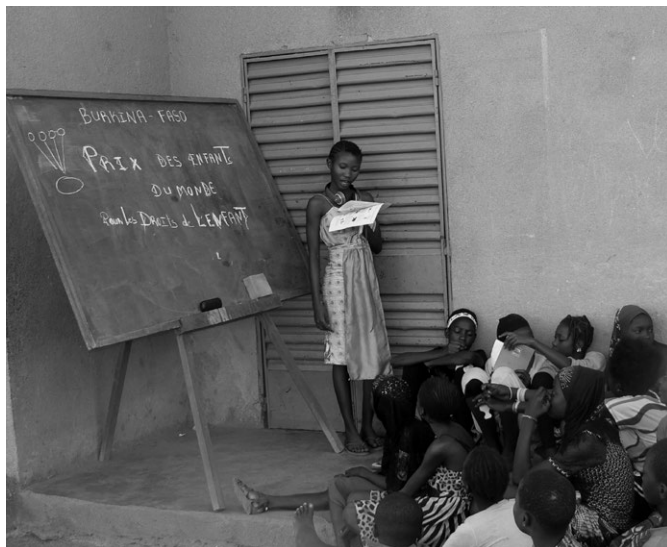 BURKINA-FASO
PRIX DES ENFANTS
DU MONDE
Pour les DROITS de L'ENFANT